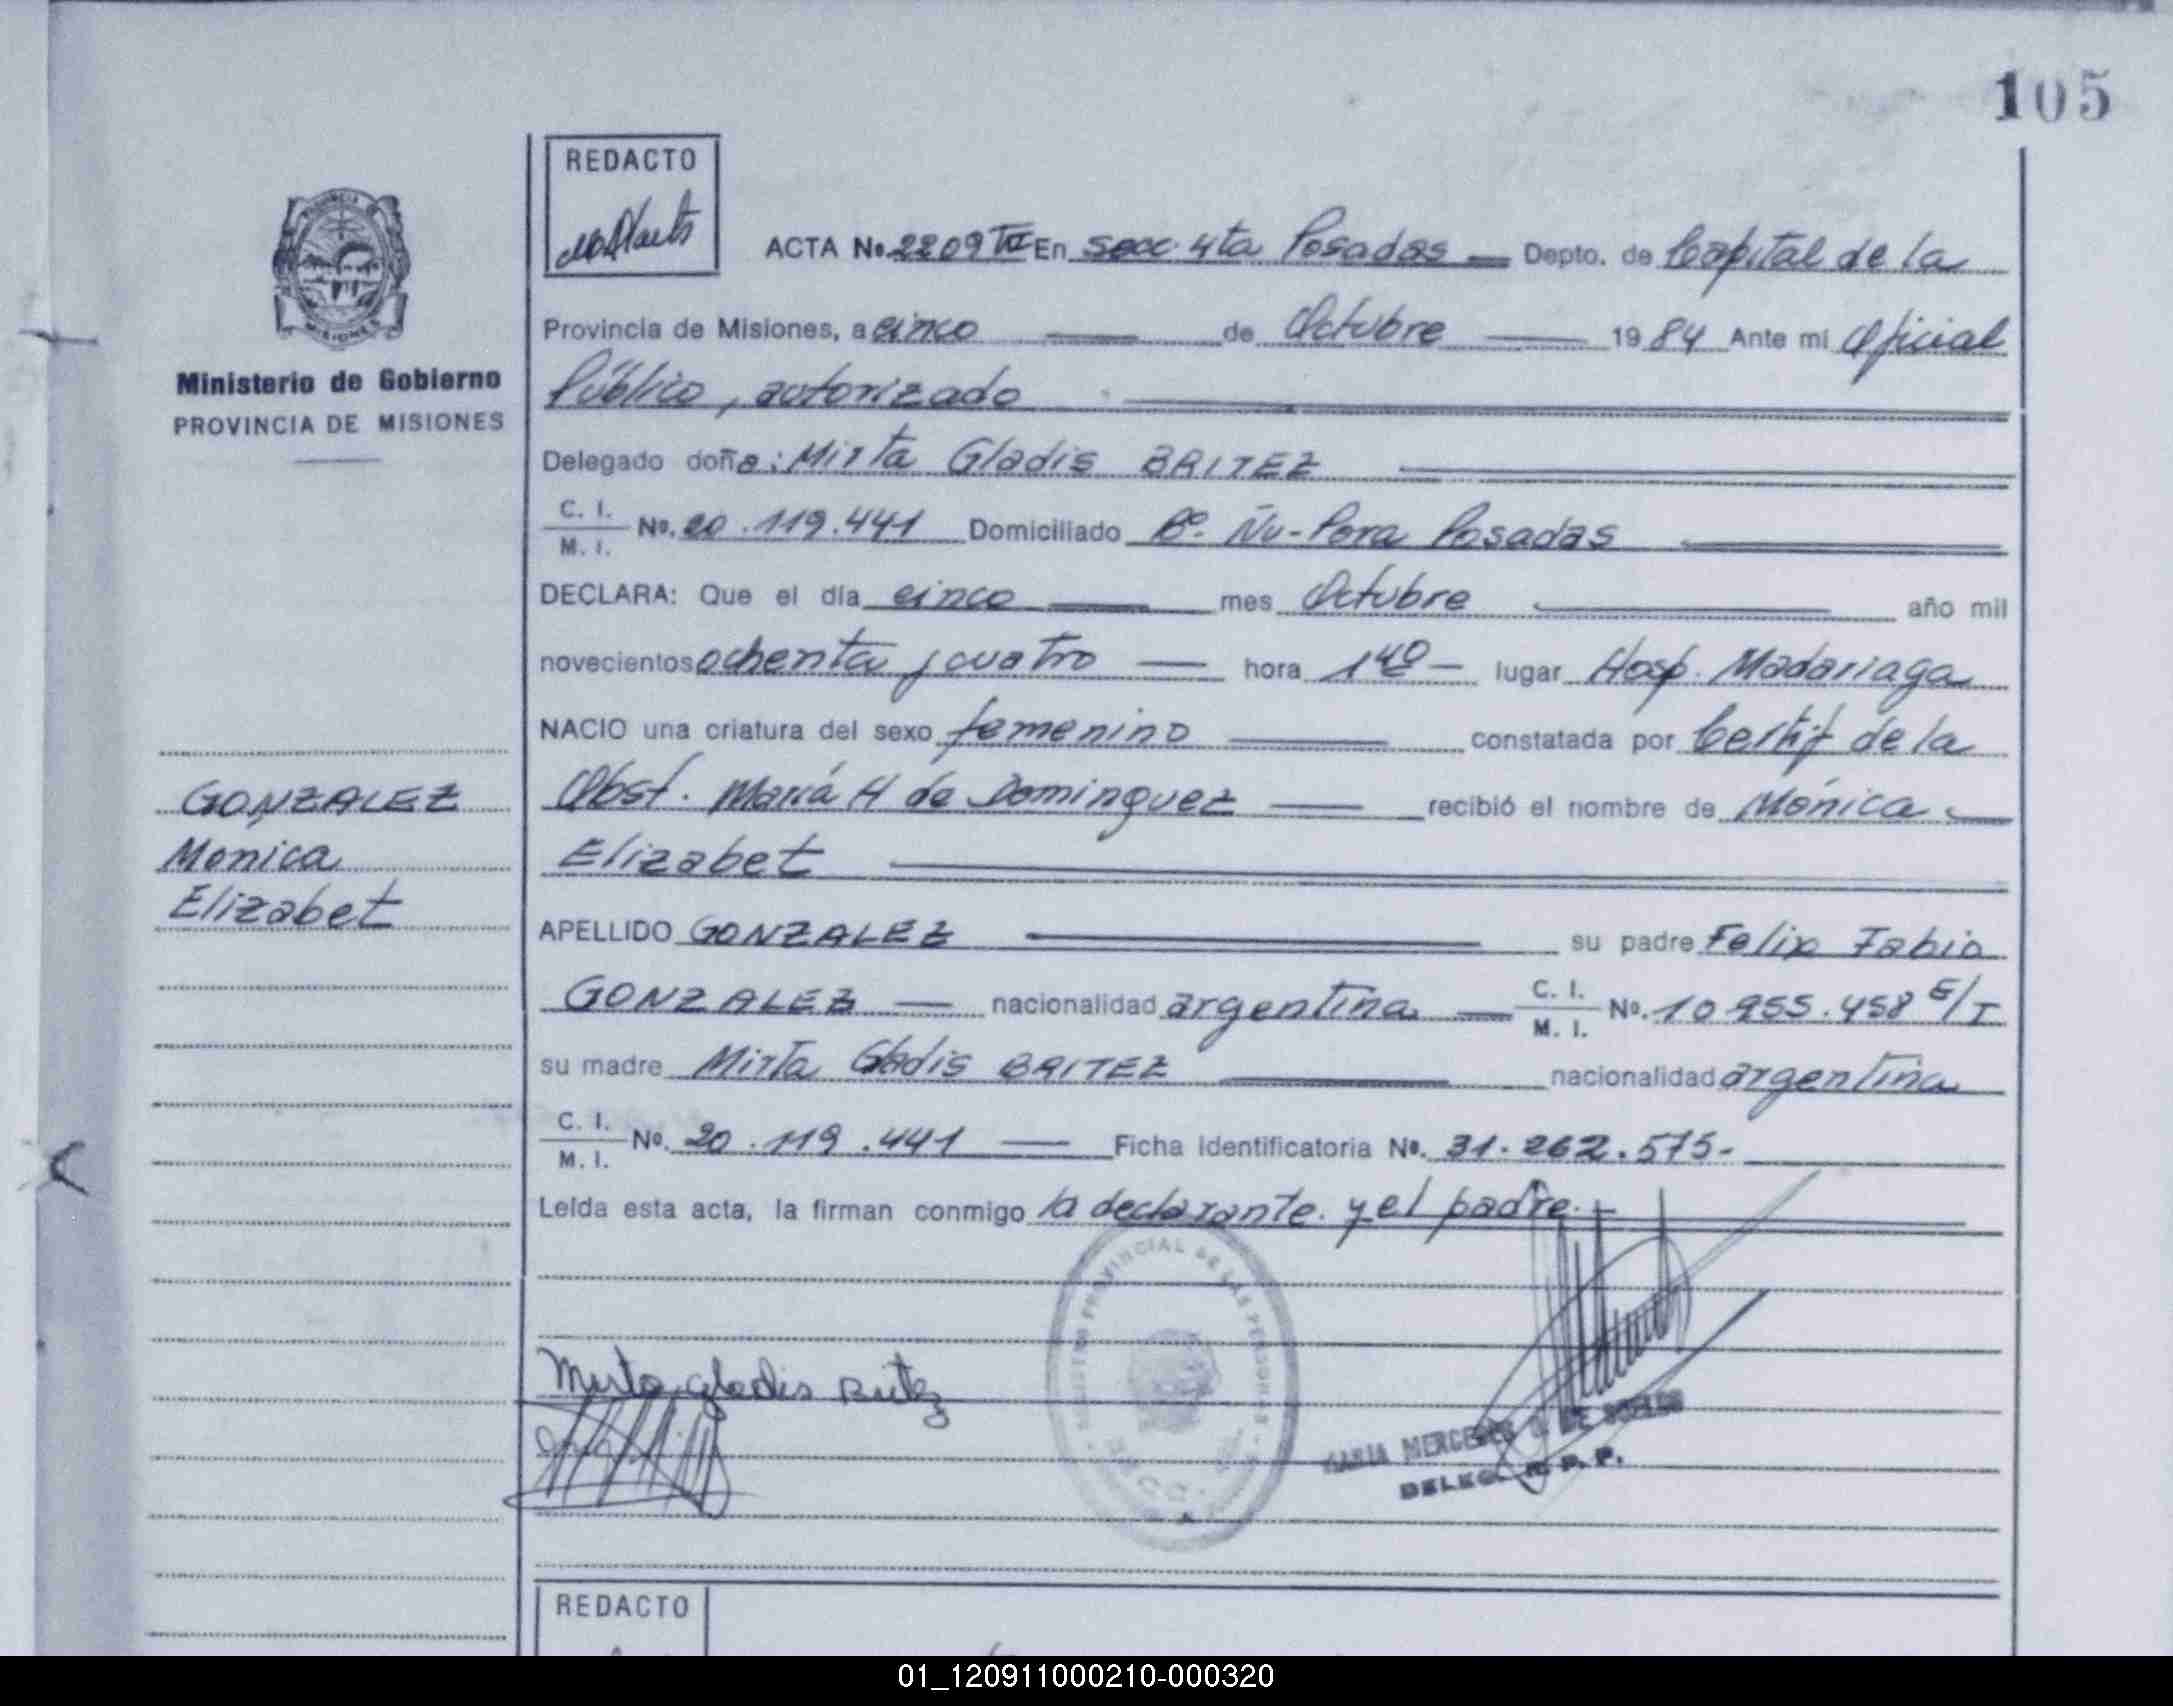 105
REDACTO
ACTA No. 2209 TII En secc. 4ta Posadas — Depto. de Capital de la
Provincia de Misiones, a cinco — de Octubre — 1984 Ante mi Oficial
Público, autorizado
Ministerio de Gobierno
PROVINCIA DE MISIONES
Delegado doña: Mirta Gladis BRITEZ
C. I.
M. I. No. 20.119.441 Domiciliado B°. Ñu-Pora Posadas
DECLARA: Que el día cinco — mes Octubre — año mil
novecientos ochenta y cuatro — hora 1 40 — lugar Hosp. Madariaga
NACIO una criatura del sexo femenino — constatada por Certif de la
Obst. María H de Dominguez — recibió el nombre de Mónica —
Elizabet
GONZALEZ
Monica
Elizabet
APELLIDO GONZALEZ — su padre Felix Fabio
GONZALEZ — nacionalidad argentina — C. I.
M. I. No. 10.955.458 E/T
su madre Mirta Gladis BRITEZ — nacionalidad argentina
C. I.
M. I. No. 20.119.441 — Ficha Identificatoria No. 31.262.575-
Leída esta acta, la firman conmigo la declarante y el padre.-
Mirta gladis Britez
PROVINCIAL DE LAS PERSONAS
MARIA MERCEDES
REDACTO
01_120911000210-000320